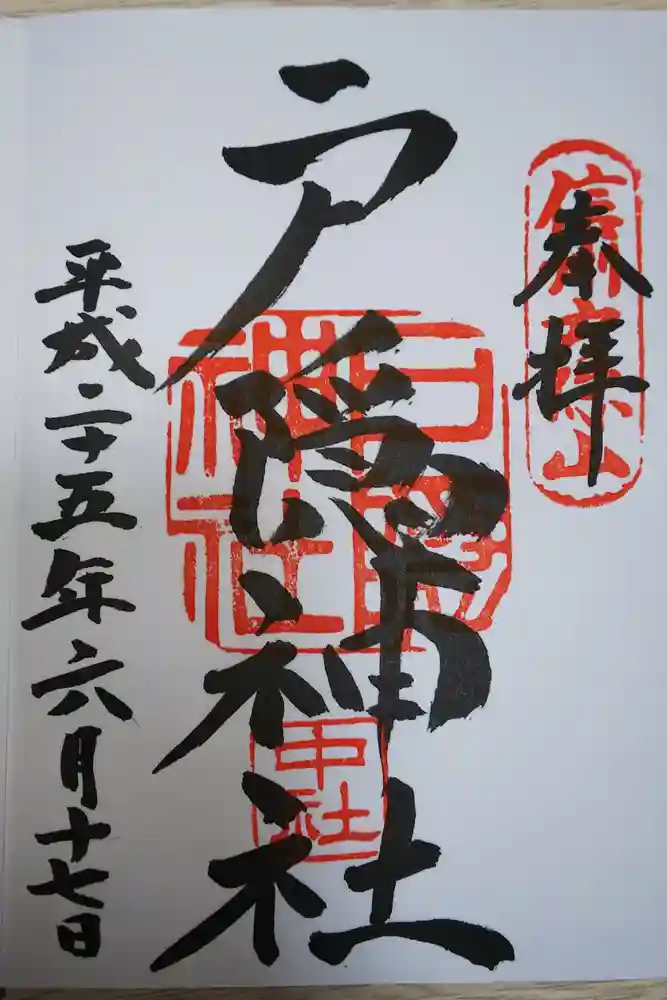 奉拝
信州戸隠山
戸隠神社
戸隠神社
中社
平成二十五年六月十七日